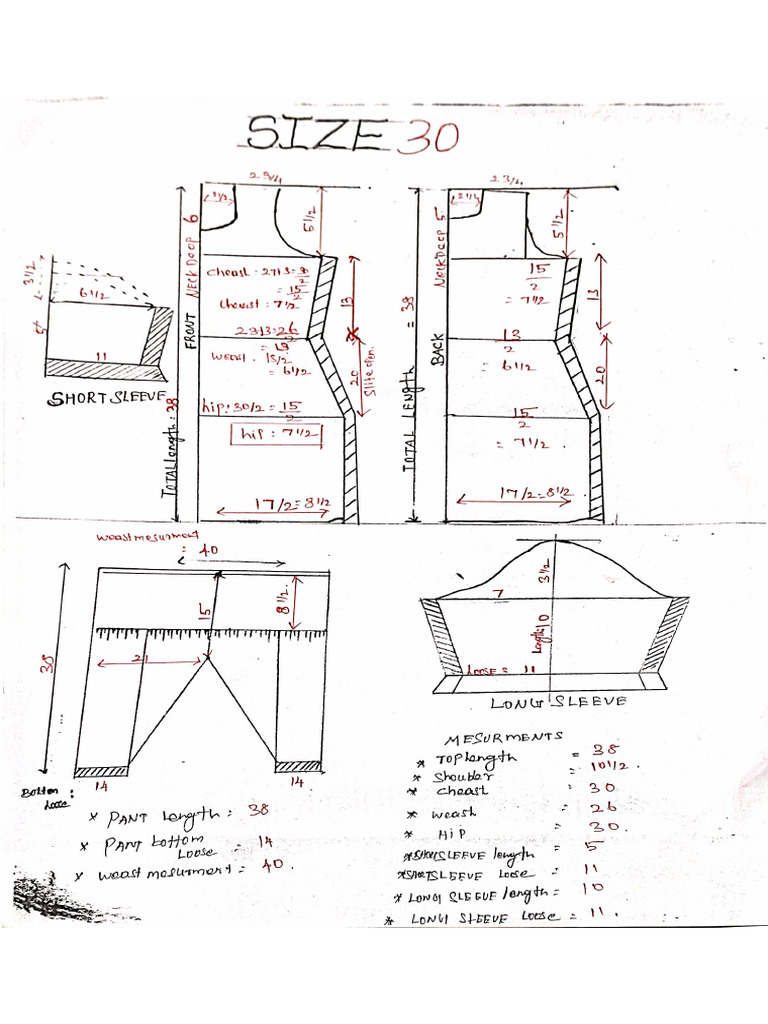 SIZE 30
2 3/4
2 1/2
5 1/2
FRONT NECK Deep 6
cheast : 27+3=30/2
= 15/2
cheast : 7 1/2
13
23+3=26/2
= 13
weast = 13/2
= 6 1/2
20
Slite open
hip: 30/2 = 15/2
hip = 7 1/2
17/2=8 1/2
TOTAL length = 38
3 1/2
6 1/2
5
11
SHORT SLEEVE
2 3/4
2 1/2
5 1/2
BACK NECK Deep 5
15/2
= 7 1/2
13
13/2
= 6 1/2
20
15/2
= 7 1/2
17/2=8 1/2
TOTAL LENGTH = 38
weast mesurment
= 40
38
15
8 1/2
21
14
14
Bottom Loose :
* PANT Length = 38
* PANT bottom Loose = 14
* weast mesurment = 40
3 1/2
7
Length 10
LOOSE = 11
LONG SLEEVE
MESURMENTS
* TOP length = 38
* Shoulder = 10 1/2
* cheast = 30
* weast = 26
* HiP = 30
* SHORT SLEEVE length = 5
* SHORT SLEEVE Loose = 11
* LONG SLEEVE length = 10
* LONG SLEEVE Loose = 11